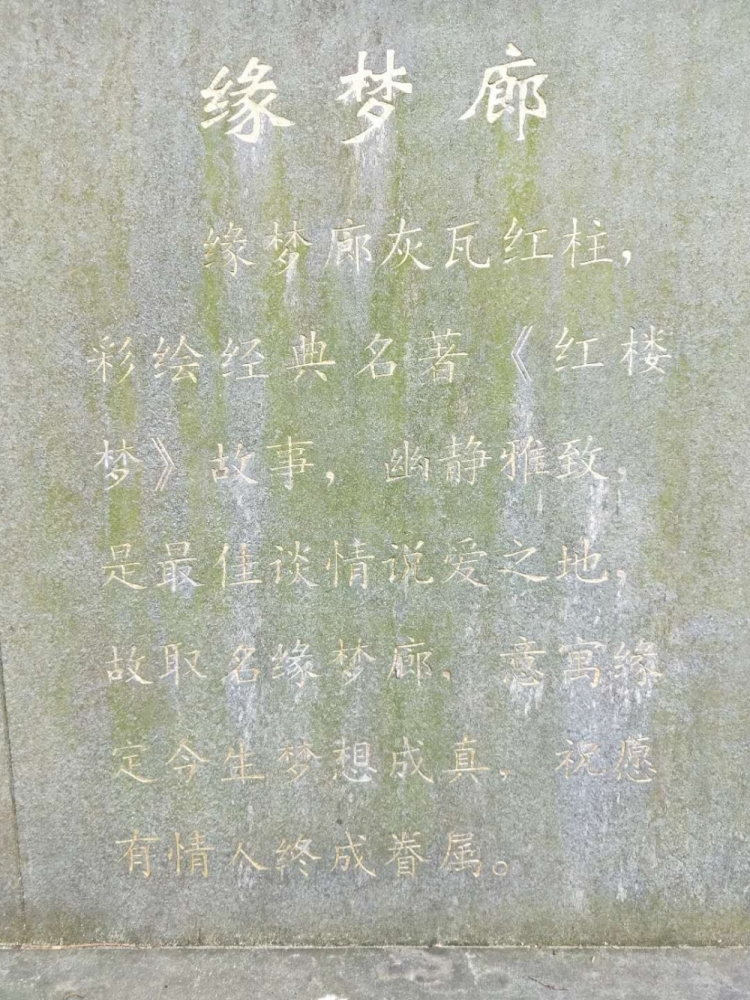 缘梦廊
缘梦廊灰瓦红柱，
彩绘经典名著《红楼
梦》故事，幽静雅致，
是最佳谈情说爱之地，
故取名缘梦廊，意寓缘
定今生梦想成真，祝愿
有情人终成眷属。